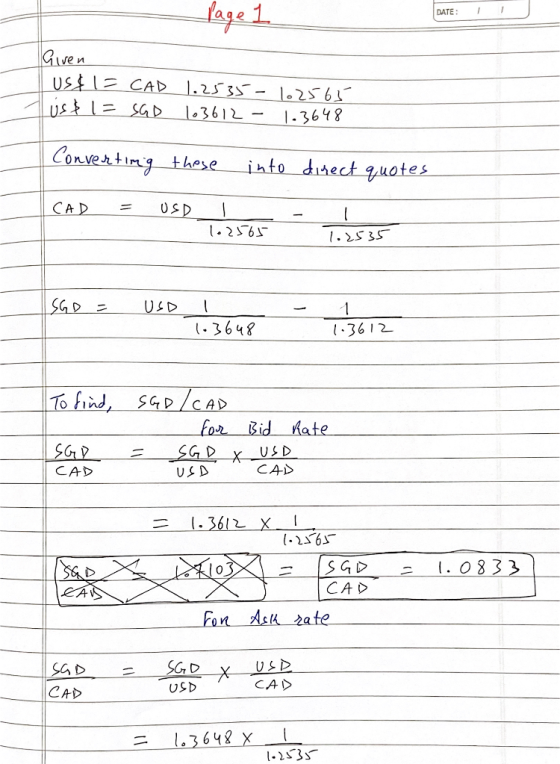 Page 1
DATE: / /
Given
US$ 1 = CAD 1.2535 - 1.2565
US$ 1 = SGD 1.3612 - 1.3648
Converting these into direct quotes
CAD = USD 1/1.2565 - 1/1.2535
SGD = USD 1/1.3648 - 1/1.3612
To find, SGD/CAD
For Bid Rate
SGD/CAD = SGD/USD × USD/CAD
= 1.3612 × 1/1.2565
SGD/CAD = 1.7103 = SGD/CAD = 1.0833
For Ask rate
SGD/CAD = SGD/USD × USD/CAD
= 1.3648 × 1/1.2535